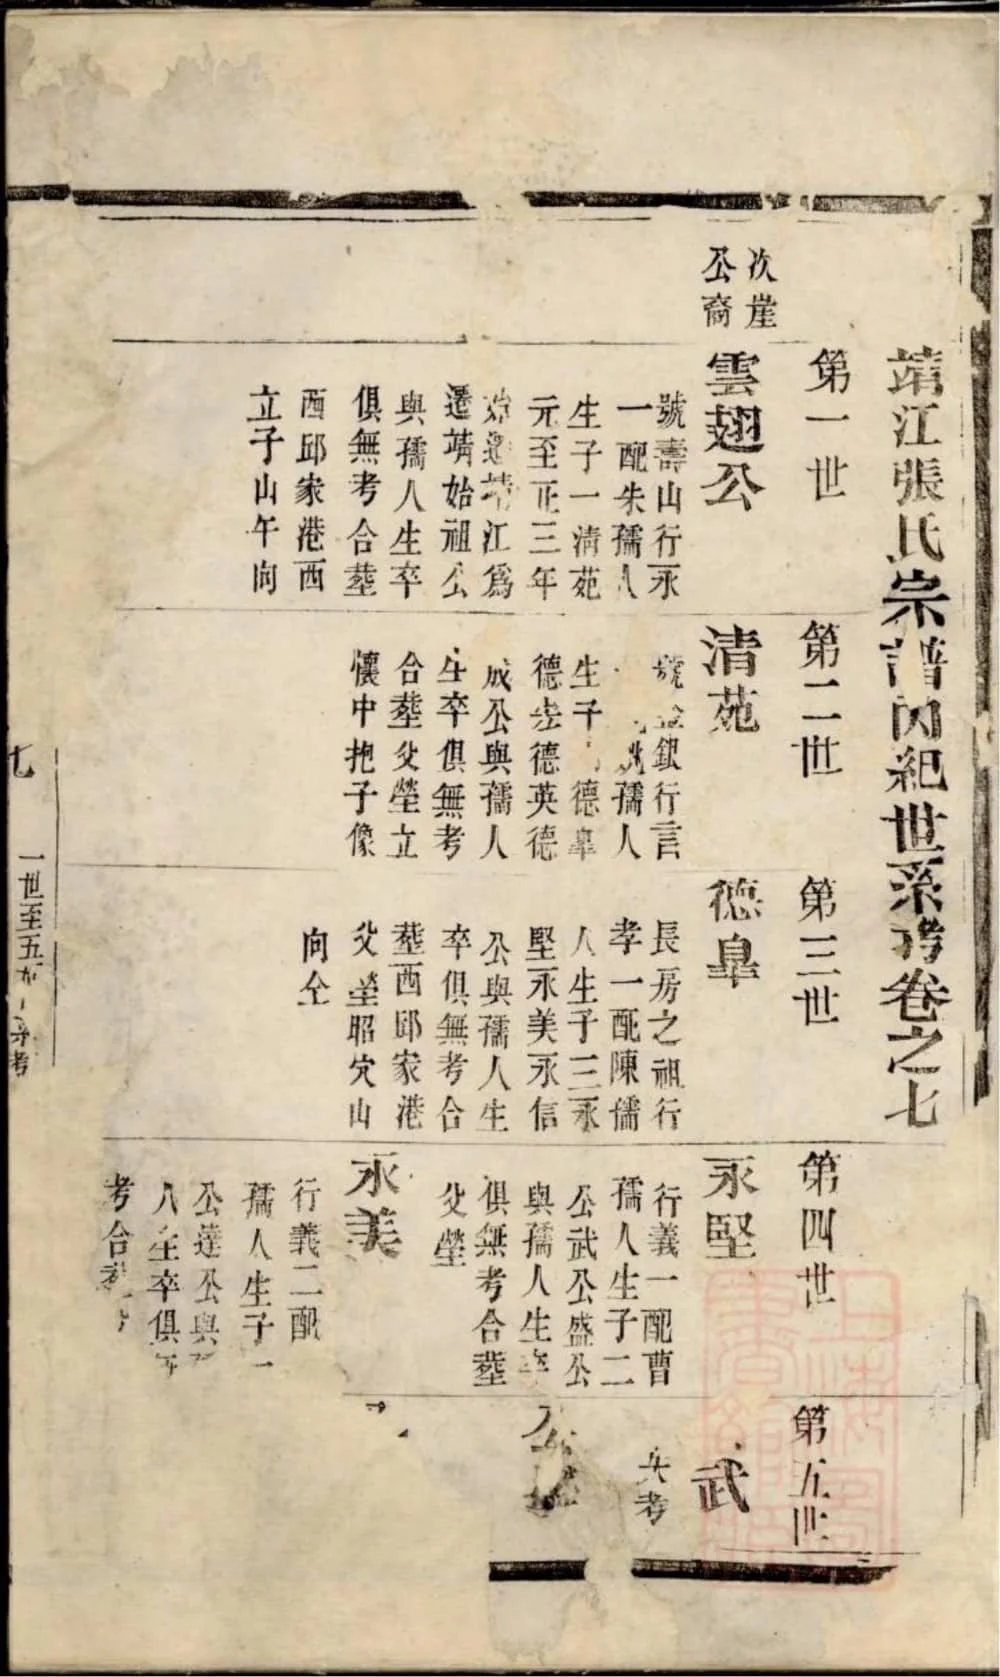 靖江張氏宗譜內紀世系考卷之七
第一世
次崖
公裔
雲翅公
號壽山行永
一配朱孺人
生子一清苑
元至正三年
始遷靖江爲
遷靖始祖公
與孺人生卒
俱無考合塟
酉邱家港西
立子山午向
第二世
清苑
號 銀行言
孺人
生子 德臯
德 德英德
成公與孺人
生卒俱無考
合塟父塋立
懷中抱子像
第三世
德臯
長房之祖行
孝一配陳孺
人生子三永
堅永美永信
公與孺人生
卒俱無考合
塟西邱家港
父塋昭穴山
向仝
第四世
永堅
行義一配曹
孺人生子二
公武公盛公
與孺人生卒
俱無考合塟
父塋
永美
行義二配
孺人生子
公達公與
人生卒俱
考合塟
第五世
武
考
公
七
一世至五 考